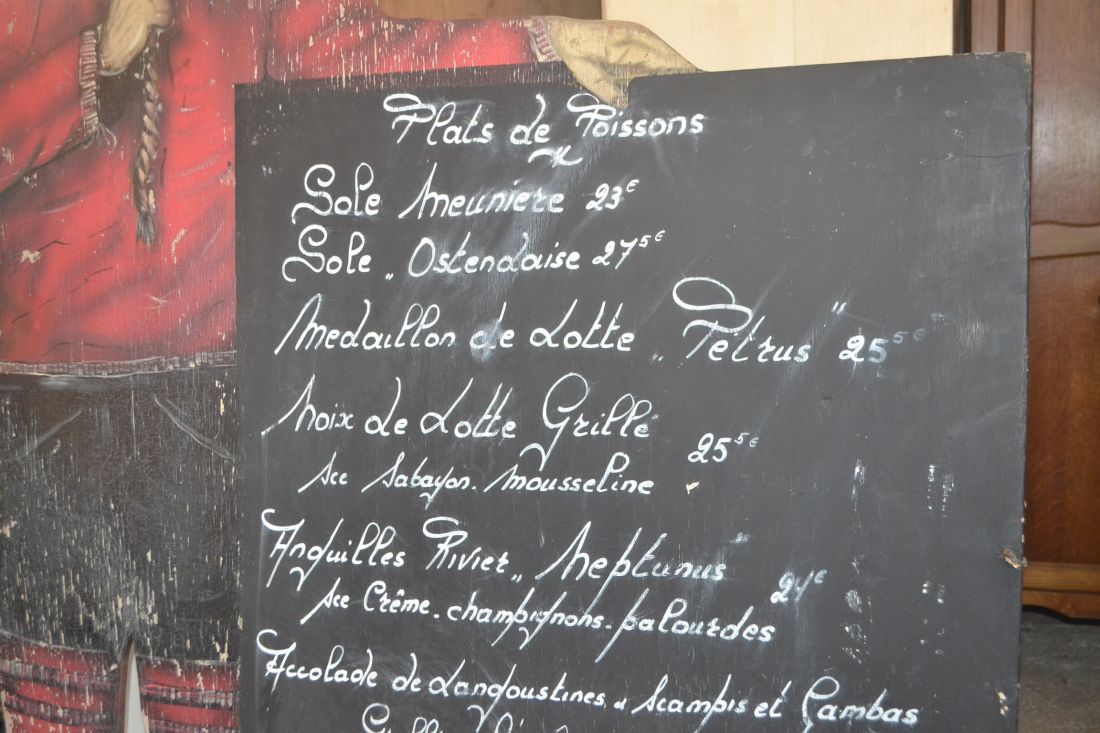 Plats de Poissons
Sole Meuniere 23€
Sole „ Ostendaise 27 5€
Medaillon de Lotte „ Pétrus " 25 5€
Noix de Lotte Grillé 25 5€
sce Sabayon. Mousseline
Anguilles Rivier „ Neptunus " 24€
sce Crême. champignons. palourdes
Accolade de Langoustines, Scampis et Gambas